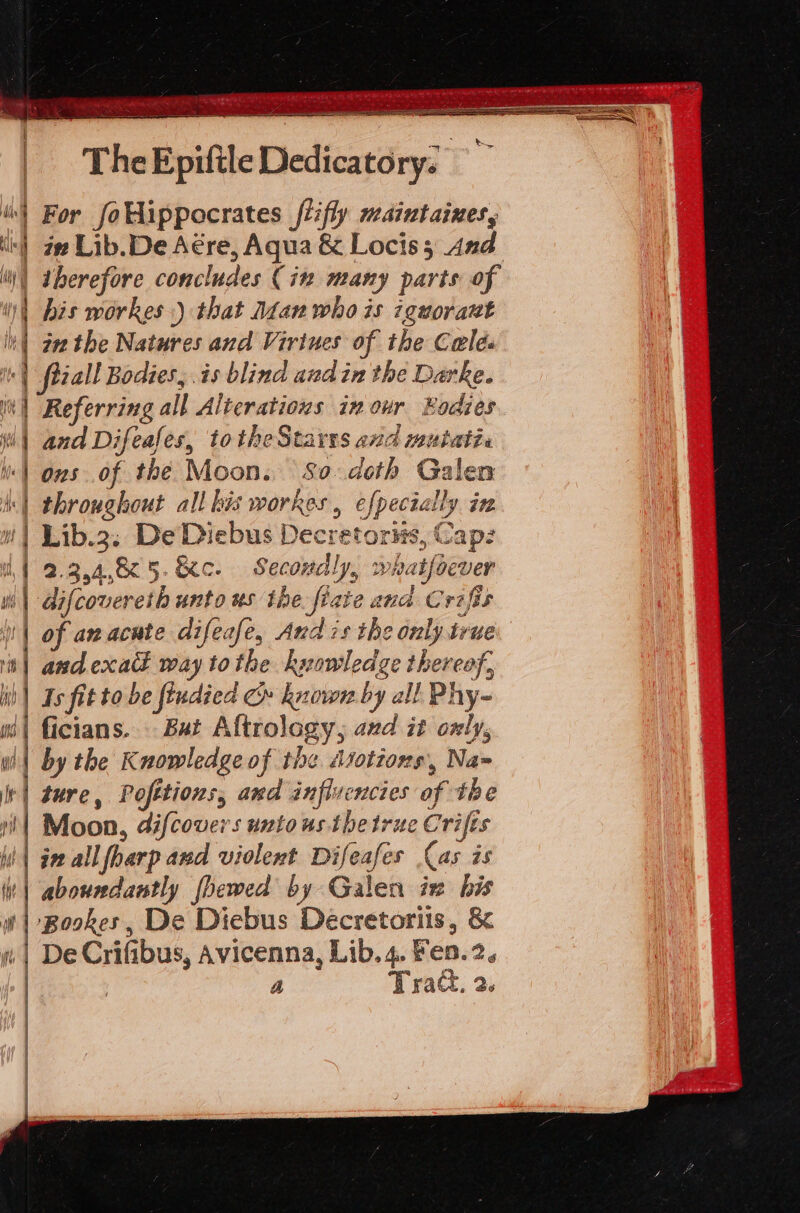 The Epiſtle Dedicatory.
For ſo Hippocrates ſtifly maintaines,
in Lib.De Aëre, Aqua & Locis; And
therefore concludes (in many parts of
his workes) that Man who is ignorant
in the Natures and Virtues of the Cœle-
ſtiall Bodies, is blind and in the Darke.
Referring all Alterations in our Bodies
and Diſeaſes, to the Starrs and mutati-
ons of the Moon. So doth Galen
throughout all his workes, eſpecially in
Lib.3. De Diebus Decretoriis, Cap:
2.3,4,& 5. &c. Secondly, whatſoever
diſcovereth unto us the ſtate and Criſis
of an acute diſeaſe, And is the only true
and exact way to the knowledge thereof,
Is fit to be ſtudied & known by all Phy-
ſicians. But Aſtrology, and it only,
by the Knowledge of the Motions, Na-
ture, Poſitions, and influencies of the
Moon, diſcovers unto us the true Criſis
in all ſharp and violent Diſeaſes (as is
aboundantly ſhewed by Galen in his
Bookes, De Diebus Decretoriis, &
De Criſibus, Avicenna, Lib.4. Fen.2.
a Tract. 2.